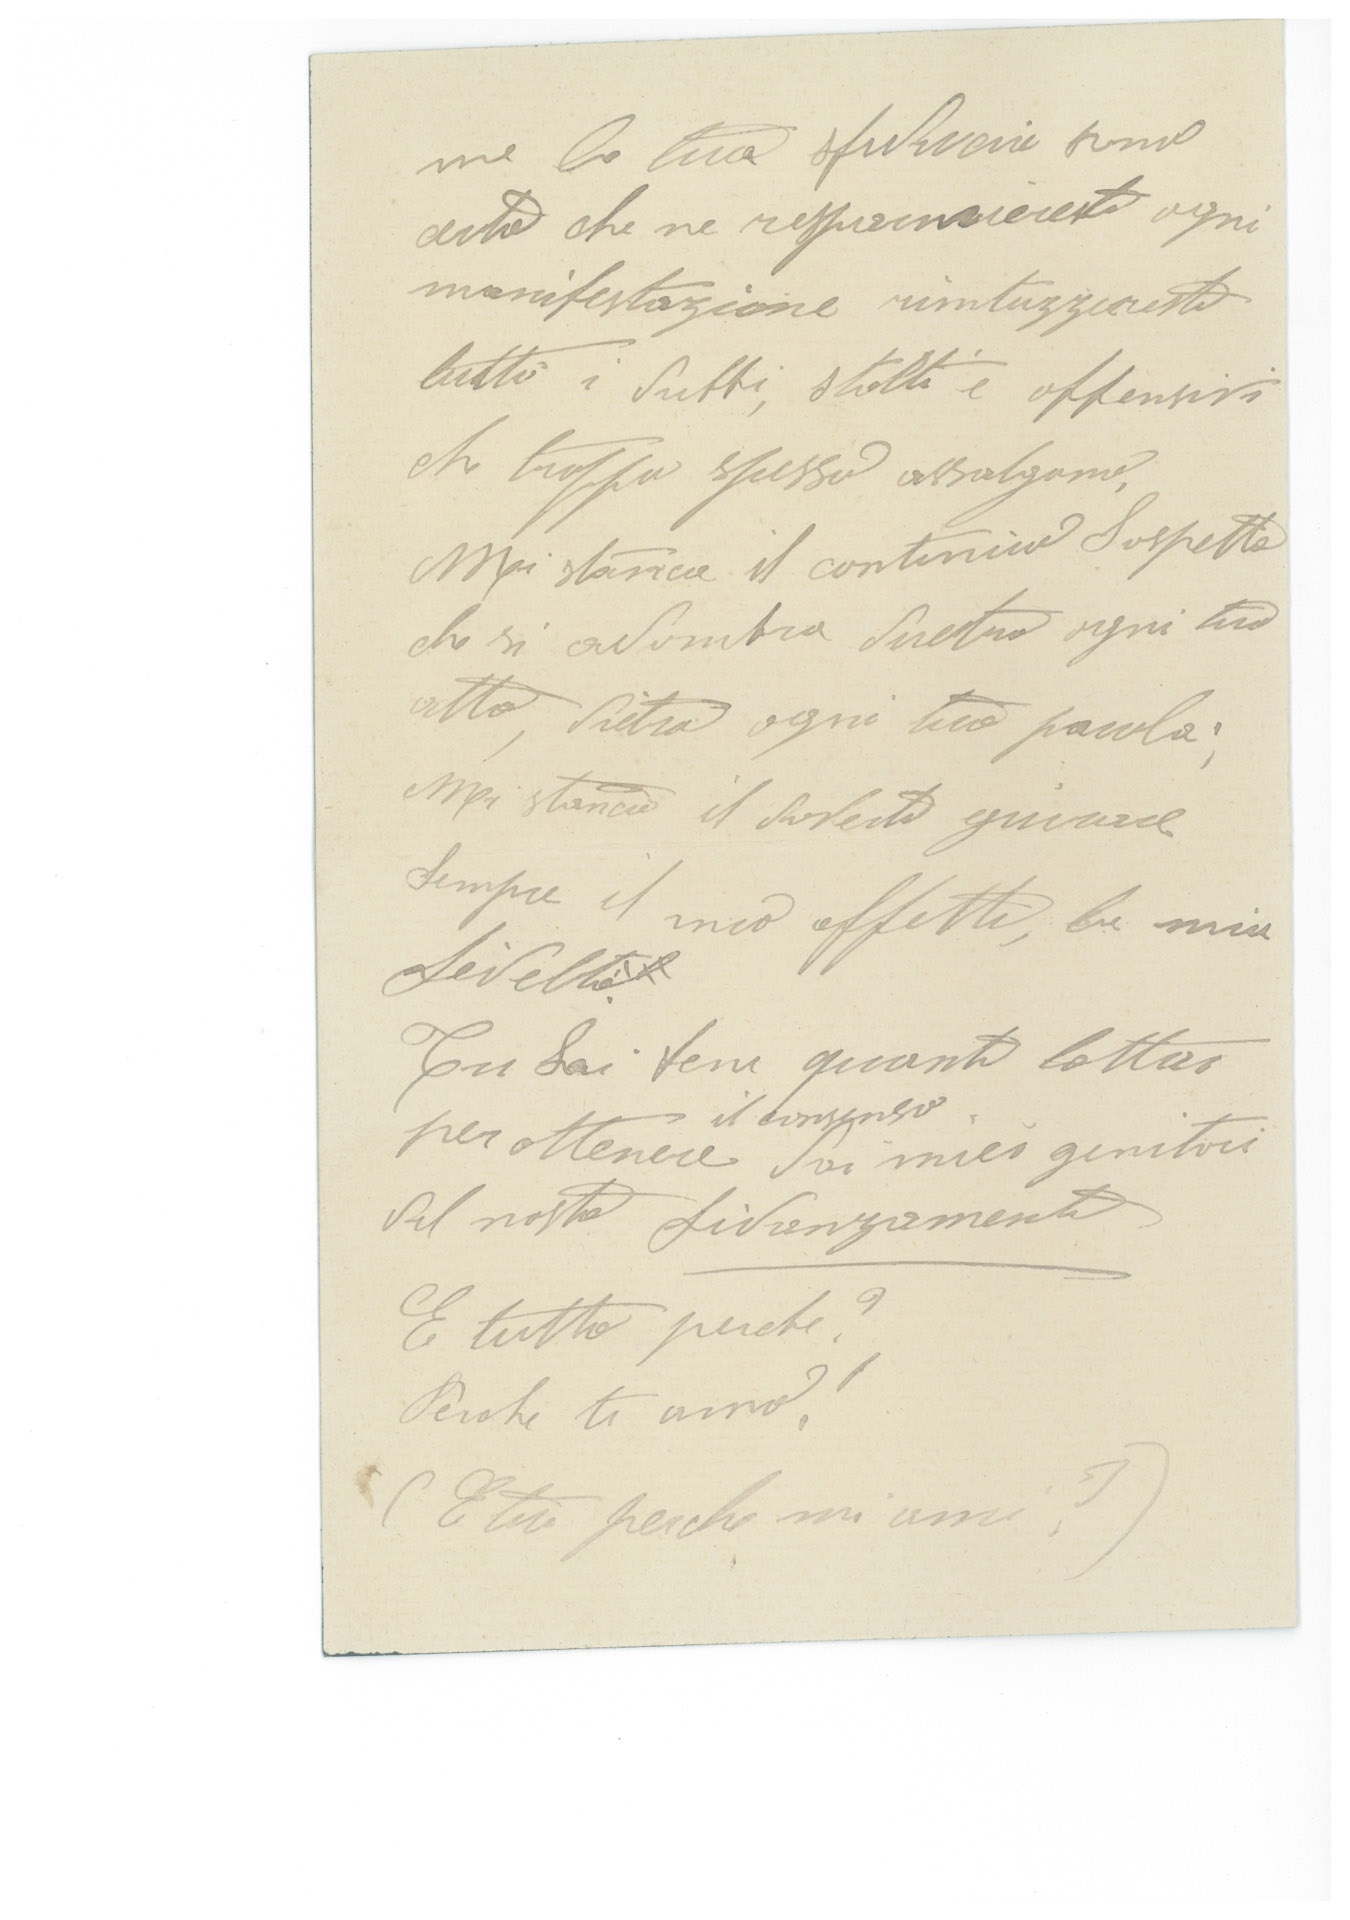 me la tua sfiducia sono
certo che ne risparmieresti ogni
manifestazione rintuzzeresti
tutti i dubbi, stolti e offensivi
che troppo spesso assalgono.
Mi stanca il continuo sospetto
che si adombra dietro ogni tuo
atto, dietro ogni tua parola;
Mi stanca il doverti giurare
sempre il mio affetto, la mia
fedeltà.
Tu sai bene quanto lottai
per ottenere il consenso dai miei genitori
del nostro fidanzamento
E tutto perche?
Perche ti amo!
(E tu perche mi ami?)